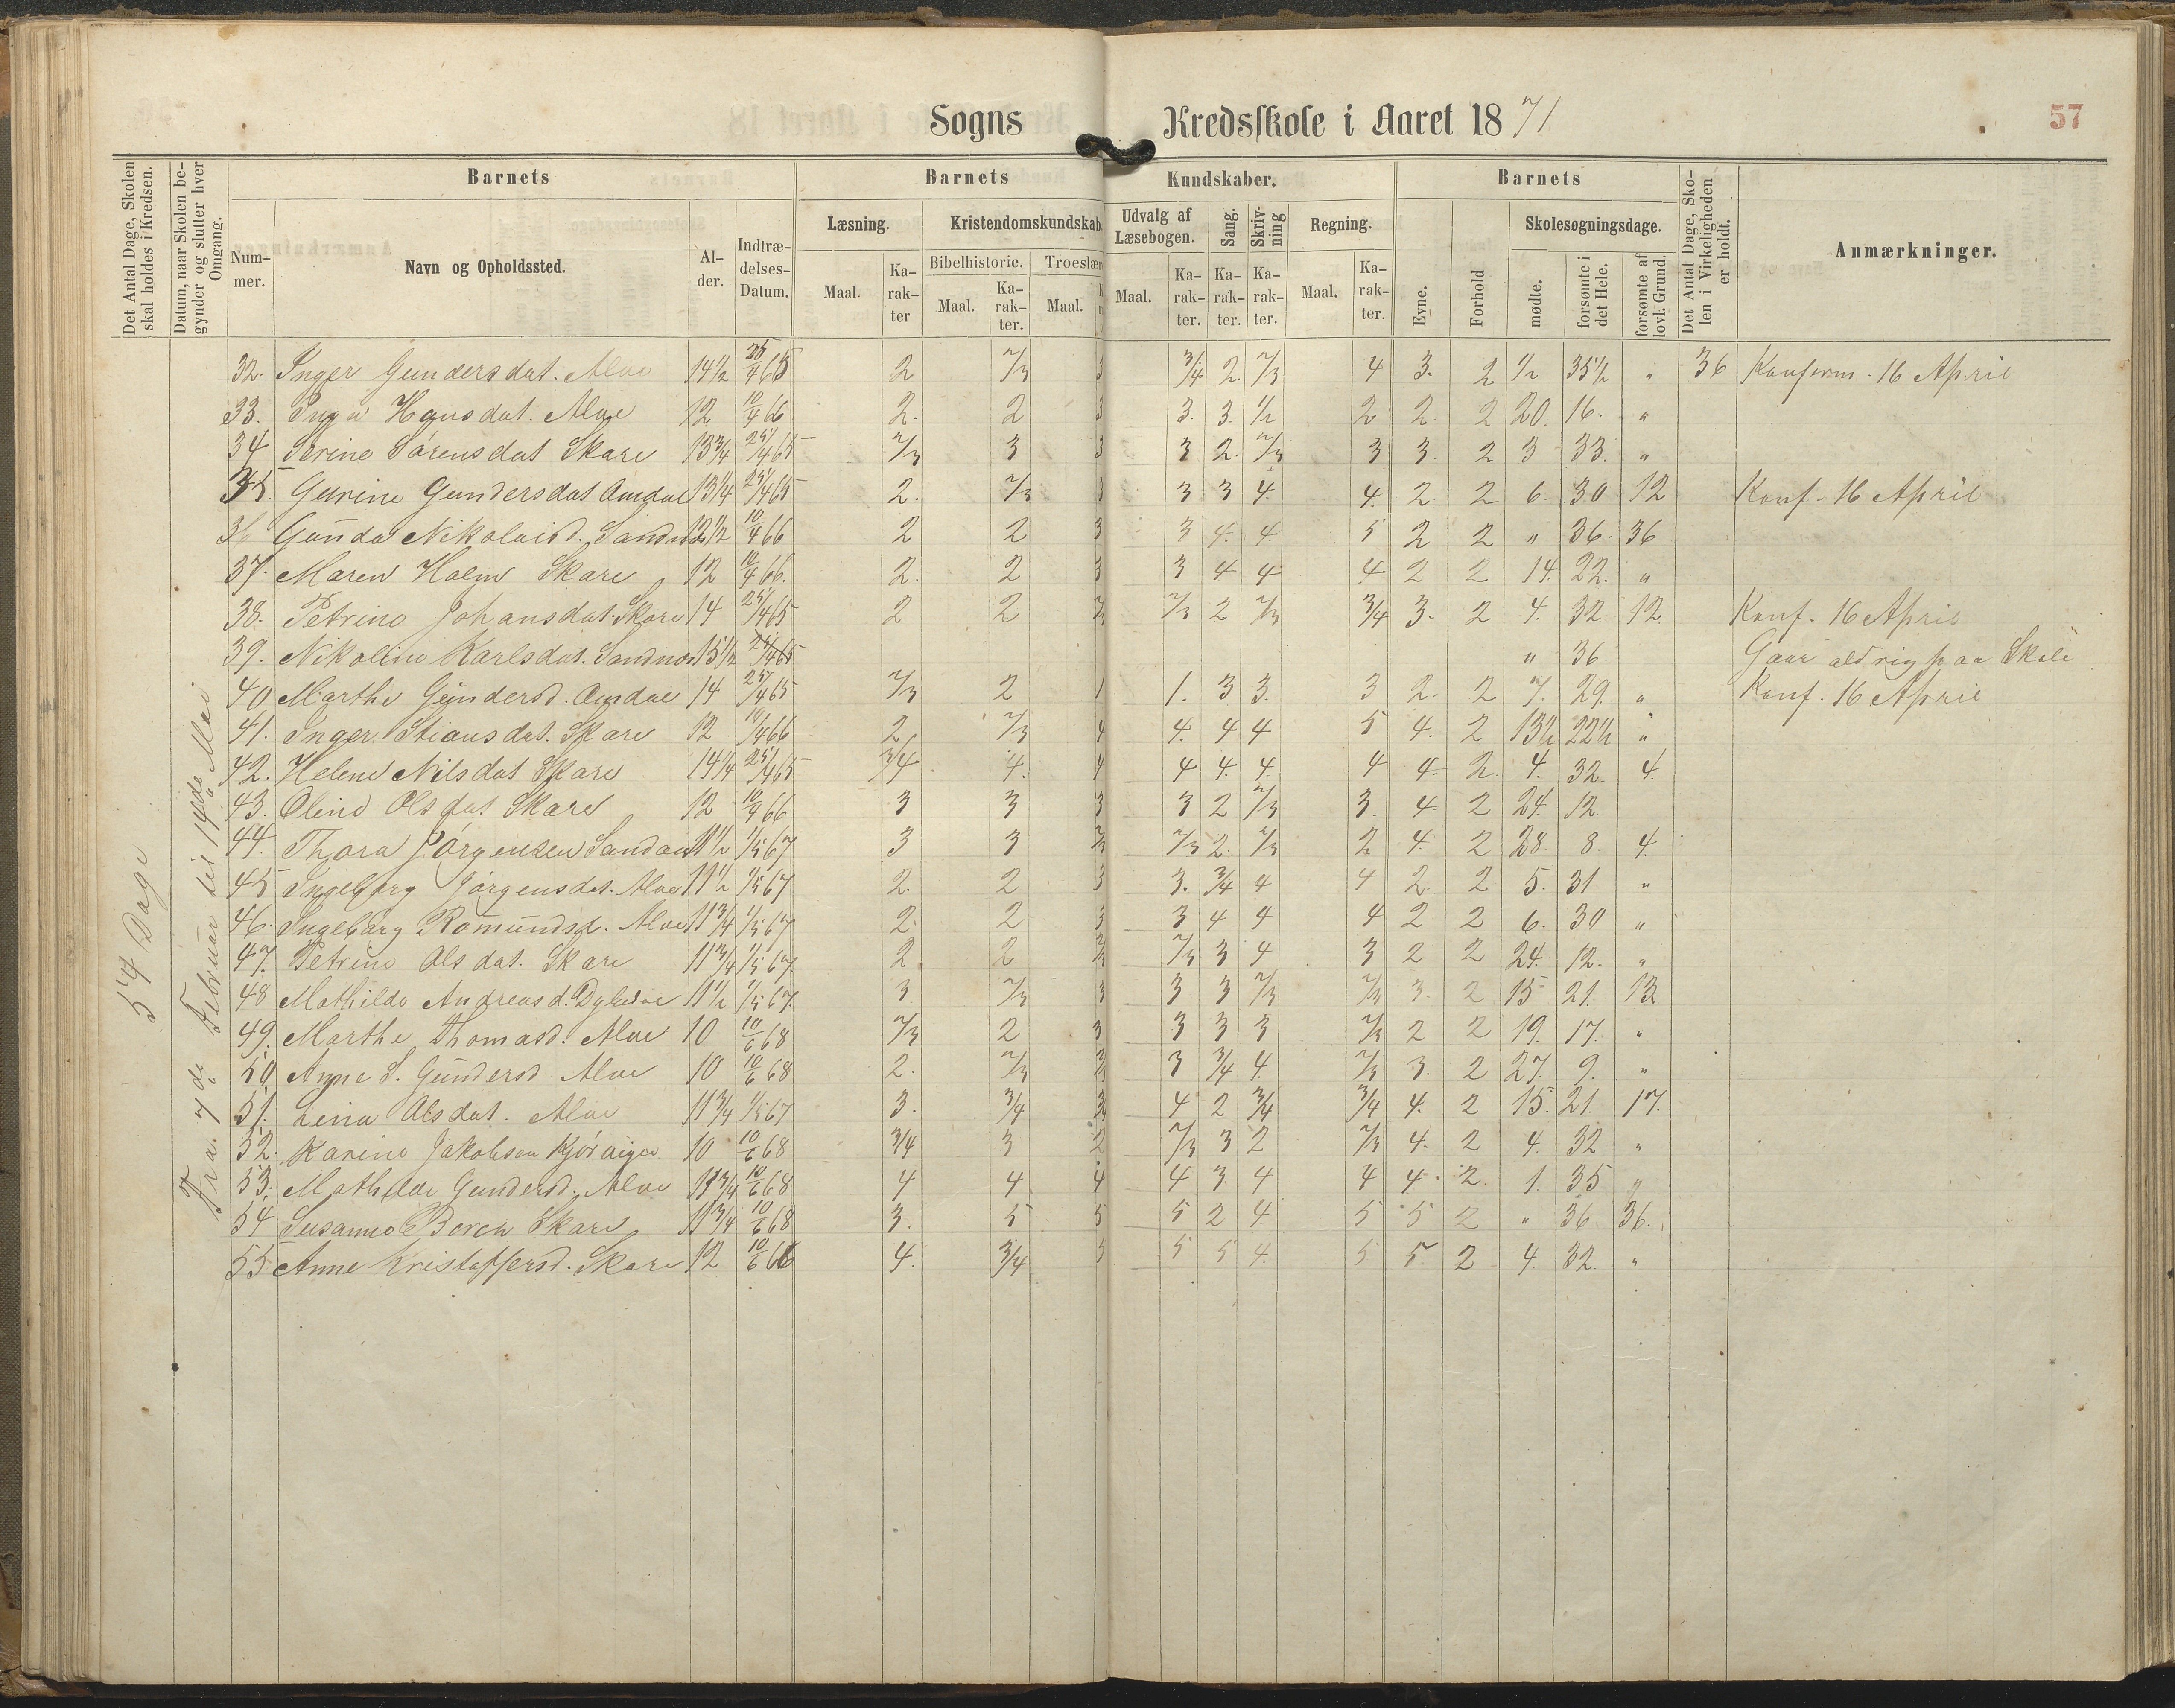 Sogns Kredsskole i Aaret 1871
57
Det Antal Dage, Skolen skal holdes i Kredsen.
Datum, naar Skolen begynder og slutter hver Omgang.
Barnets
Barnets
Kundskaber.
Barnets
Det Antal Dage, Skolen i Virkeligheden er holdt.
Anmærkninger.
Nummer.
Navn og Opholdssted.
Alder.
Indtrædelses-Datum.
Læsning.
Kristendomskundskab.
Udvalg af Læsebogen.
Sang.
Skrivning
Regning.
Evne.
Forhold
Skolesøgningsdage.
Bibelhistorie.
Troeslær
Maal.
Karakter
Maal.
Karakter.
Maal.
Maal.
Karakter.
Karakter.
Karakter.
Maal.
Karakter.
mødte.
forsømte i det Hele.
forsømte af lovl. Grund.
54 Dage
Fra 7de Februar til 14de Mai
32. Inger Gundersdat. Alve 14½ 25/4 65 2 2/3 3 3/4 2. 2/3 4 3. 2 ½ 35½ " 36 Konferm. 16 April
33. Inga Hansdat. Alve 12 10/4 66 2. 2 3 3. 3. ½ 2 2. 2 20. 16. "
34 Serine Sørensdat Skare 13¾ 25/4 65 2/3 3 3 3 2. 2/3 3 3. 2 3 33. "
35. Gurine Gundersdat Omdal 13¼ 25/4 65 2. 2/3 3 3 3 4. 4. 2. 2 6. 30 12 Konf. 16 April
36 Gunda Nikolaid. Sandn 12½ 10/4 66 2 2 3 3 4. 4. 5 2 2 " 36. 36
37. Maren Holm Skare 12 10/4 66. 2. 2 3 3 4 4 4 2 2 14. 22. "
38. Petrine Johansdat. Skare 14 25/4 65 2 2 2/3 2/3 2 2/3 3/4 3. 2 4. 32. 12. Konf. 16 April
39. Nikoline Karlsdat. Sandnes 15½ 25/4 65 " 36 Gaar aldrig paa Skole
40 Marthe Gundersd. Omdal 14 25/4 65 2/3 2 1 1. 3 3. 3 2. 2 7. 29. " Konf. 16 April
41. Inger Stiansdat. Skare 12 10/4 66 2 2/3 4 4. 4 4 5 4. 2 13½ 22½ "
42. Helene Nilsdat Skare 14¼ 25/4 65 3/4 4. 4 4 4. 4. 4 4. 2. 4. 32. 4.
43. Oline Olsdat. Skare 12 10/4 66 3 3 3 3 2 2/3 3. 4. 2 24. 12.
44. Thora Jørgensen 11½ 1/5 67 3 3 2/3 2/3 2. 2/3 2 4. 2 28. 8. 4.
45 Ingeborg Jørgensdt. Alve 11½ 1/5 67 2. 2 3 3. 3/4 4 4 2. 2 5. 31 "
46. Ingeborg Romundsd. Alve 11¾ 1/5 67 2. 2 3 3 4 4 4 2 2 6. 30 "
47. Petrine Olsdat. Skare 11¾ 1/5 67. 2. 2 2/3 2/3 3 4 3 2 2 24. 12. "
48 Mathilde Andreasd. 11½ 1/5 67. 3. 2/3 3 3 3 2/3 2/3 3. 2 15 21. 13
49. Marthe Thomasd. Alve 10 10/6 68 2/3 2 3 3 3 3 2/3 2 2 19. 17. "
50 Anne S. Gundersd Alve 10 10/6 68 2. 2/3 2/3 3 3/4 4. 2/3 3. 2 27. 9. "
51. Lina Olsdat. Alve 11¾ 1/5 67 3. 3/4 3/4 4 2 3/4 3/4 4. 2 15. 21. 17.
52. Karine Jakobsen 10 10/6 68 3/4 3 2 2/3 3 2 2/3 4. 2 4. 32 "
53. Mathilde Gundersd. Alve 11¾ 10/6 68 4 4 4 4 3 4 4 4. 2. 1. 35 "
54 Susanne Berch Skare 11¾ 10/6 68 3. 5 5 5 2 4. 5 5 2 " 36 36.
55 Anne Kristoffersd. Skare 12 10/6 66 4. 3/4 5 5 5 4. 5 5. 2 4. 32. "